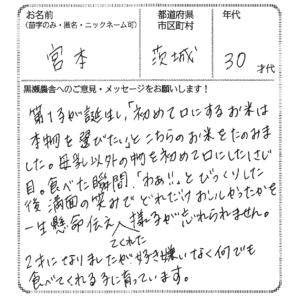 お名前
(苗字のみ・匿名・ニックネーム可)
都道府県
市区町村
年代
宮本
茨城
30才代
黒瀬農舎へのご意見・メッセージをお願いします!
第1子が誕生し、「初めて口にするお米は
本物を選びたい。」とこちらのお米をたのみま
した。母乳以外の物を初めて口にしたひさじ
目。食べた瞬間、「わぁ!!」とびっくりした
後満面の笑みでどれだけおいしかったかを
一生懸命伝え 様子が忘れられません。
てくれた
2才になりましたが好き嫌いなく何でも
食べてくれる子に育っています。